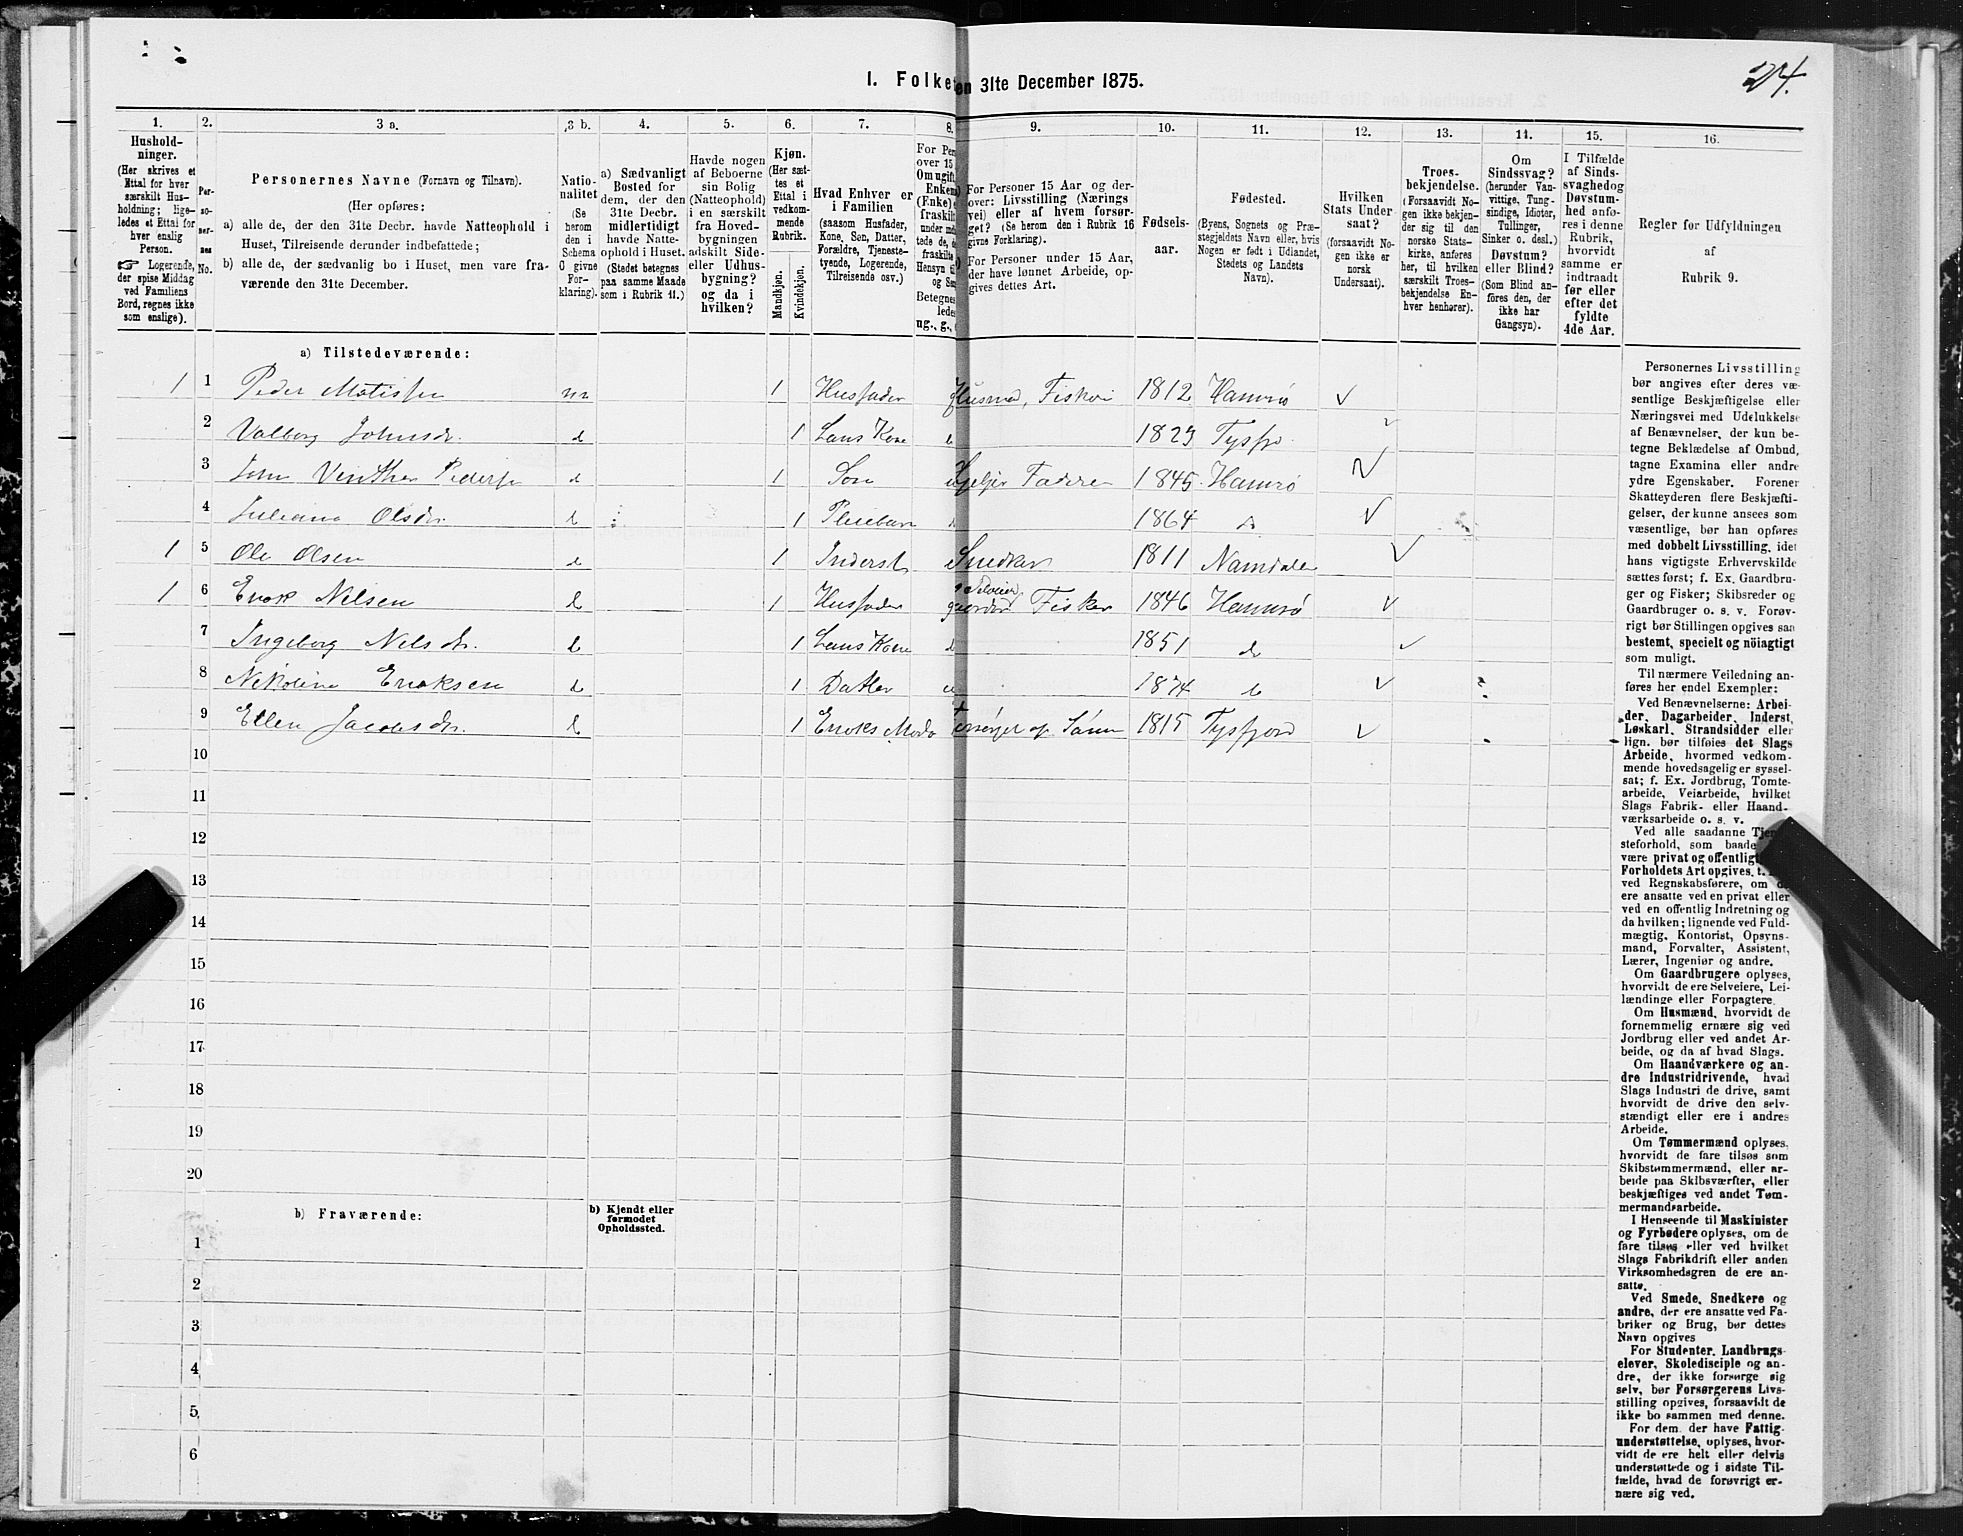 24.
I. Folke en 31te December 1875.
1. 2. 3 a. 3 b. 4. 5. 6. 7. 8. 9. 10. 11. 12. 13. 14. 15. 16.
Hushold-
ninger.
(Her skrives et
Ettal for hver
særskilt Hus-
holdning; lige-
ledes et Ettal for
hver enslig
Person.
☞ Logerende,
der spise Middag
ved Familiens
Bord, regnes ikke
som enslige).
Per-
so-
ner-
nes
No.
Personernes Navne (Fornavn og Tilnavn).
(Her opføres:
a) alle de, der den 31te Decbr. havde Natteophold i
Huset, Tilreisende derunder indbefattede;
b) alle de, der sædvanlig bo i Huset, men vare fra-
værende den 31te December.
Natio-
nalitet
(Se
herom
den i
Schema
O givne
For-
klaring).
a) Sædvanligt
Bosted for
dem, der den
31te Decbr.
midlertidigt
havde Natte-
ophold i Huset.
(Stedet betegnes
paa samme Maade
som i Rubrik 11.)
Havde nogen
af Beboerne
sin Bolig
(Natteophold)
i en særskilt
fra Hoved-
bygningen
adskilt Side-
eller Udhus-
bygning?
og da i
hvilken?
Kjøn.
(Her sæt-
tes et
Ettal i
vedkom-
mende
Rubrik.
Mandkjøn.
Kvindekjøn.
Hvad Enhver er
i Familien
(saasom Husfader,
Kone, Søn, Datter,
Forældre, Tjeneste-
tyende, Logerende,
Tilreisende osv.)
For Per
over 15
Om ugift
Enkem
(Enke)
fraskilt
under
tede de,
fraskilte
Hensyn til
og S
Betegnes
ledes
ug., g.,
For Personer 15 Aar og der-
over: Livsstilling (Nærings
vei) eller af hvem forsør-
get? (Se herom den i Rubrik 16
givne Forklaring).
For Personer under 15 Aar,
der have lønnet Arbeide, op-
gives dettes Art.
Fødsels-
aar.
Fødested.
(Byens, Sognets og Præ-
stegjeldets Navn eller, hvis
Nogen er født i Udlandet,
Stedets og Landets
Navn).
Hvilken
Stats Under
saat?
(forsaavidt No-
gen ikke er
norsk
Undersaat).
Troes-
bekjendelse.
(Forsaavidt No-
gen ikke bekjen-
der sig til den
norske Stats-
kirke, anføres
her, til hvilken
særskilt Troes-
bekjendelse En-
hver henhører).
Om
Sindssvag?
(herunder Van-
vittige, Tung-
sindige, Idioter,
Tullinger,
Sinker o. desl.)
Døvstum?
eller Blind?
(Som Blind an-
føres den, der
ikke har
Gangsyn).
I Tilfælde
af Sinds-
svaghedog
Døvstum-
hed anfø-
res i denne
Rubrik,
hvorvidt
samme er
indtraadt
før eller
efter det
fyldte
4de Aar.
Regler for Udfyldningen
af
Rubrik 9.
a) Tilstedeværende:
1 1 Peder Matissen nn 1 Husfader Husmd, Fiskeri 1812 Hamrø
2 Valborg Johnsdr. d 1 Hans Kone 1829 Tysfjo
3 John Winther Pederse d 1 Søn Hjelper Fadere 1845 Hamrø
4 Juliana Olsdr. d 1 Pleiebarn 1864 do
1 5 Ole Olsen d 1 Inderst Snedker 1811 Namdalen
1 6 Enok Nilsen d 1 Husfader Selveier gaardbr Fisker 1846 Hamrø
7 Ingeborg Nelsdr. d 1 Hans Kone 1851 do
8 Nikoline Enoksen d 1 Datter 1874 do
9 Ellen Jacobsdr. d 1 Enoks Modr forsørget af Sønn 1815 Tysfjord
10
11
12
13
14
15
16
17
18
19
20
b) Fraværende:
b) Kjendt eller
formodet
Opholdssted.
1
2
3
4
5
6
Personernes Livsstilling
bør angives efter deres væ-
sentlige Beskjæftigelse eller
Næringsvei med Udelukkelse
af Benævnelser, der kun be-
tegne Beklædelse af Ombud,
tagne Examina eller andre
ydre Egenskaber. Forener
Skatteyderen flere Beskjæfti-
gelser, der kunne ansees som
væsentlige, bør han opføres
med dobbelt Livsstilling, idet
hans vigtigste Erhvervskilde
sættes først; f. Ex. Gaardbru-
ger og Fisker; Skibsreder og
Gaardbruger o. s. v. Forøv-
rigt bør Stillingen opgives saa
bestemt, specielt og nöiagtigt
som muligt.
Til nærmere Veiledning an-
føres her endel Exempler:
Ved Benævnelserne: Arbei-
der, Dagarbeider, Inderst,
Løskarl, Strandsidder eller
lign. bør tilføies det Slags
Arbeide, hvormed vedkom-
mende hovedsagelig er syssel-
sat; f. Ex. Jordbrug, Tomte-
arbeide, Veiarbeide, hvilket
Slags Fabrik- eller Haand-
værksarbeide o. s. v.
Ved alle saadanne Tjen
steforhold, som baade
være privat og offentligt
Forholdets Art opgives, t.
ved Regnskabsførere, om de
ere ansatte ved en privat eller
ved en offentlig Indretning og
da hvilken; lignende ved Fuld-
mægtig, Kontorist, Opsyns-
mand, Forvalter, Assistent,
Lærer, Ingeniør og andre.
Om Gaardbrugere oplyses,
hvorvidt de ere Selveiere, Lei-
lændinge eller Forpagtere.
Om Husmænd, hvorvidt de
fornemmelig ernære sig ved
Jordbrug eller ved andet Ar-
beide, og da af hvad Slags.
Om Haandværkere og an-
dre Industridrivende, hvad
Slags Industri de drive, samt
hvorvidt de drive den selv-
stændigt eller ere i andres
Arbeide.
Om Tømmermænd oplyses,
hvorvidt de fare tilsøs som
Skibstømmermænd, eller ar-
beide paa Skibsværfter, eller
beskjæftiges ved andet Tøm-
mermandsarbeide.
I Henseende til Maskinister
og Fyrbødere oplyses, om de
fare tilsøs eller ved hvilket
Slags Fabrikdrift eller anden
Virksomhedsgren de ere an-
satte.
Ved Smede, Snedkere og
andre, der ere ansatte ved Fa-
briker og Brug, bør dettes
Navn opgives
For Studenter, Landbrugs-
elever, Skoledisciple og an-
dre, der ikke forsørge sig
selv, bør Forsørgerens Livs-
stilling opgives, forsaavidt de
ikke bo sammen med denne.
For dem, der have Fattig-
understøttelse, oplyses, hvor-
vidt de ere helt eller delvis
understøttede og i sidste Til-
fælde, hvad de forøvrigt er-
nære sig ved.